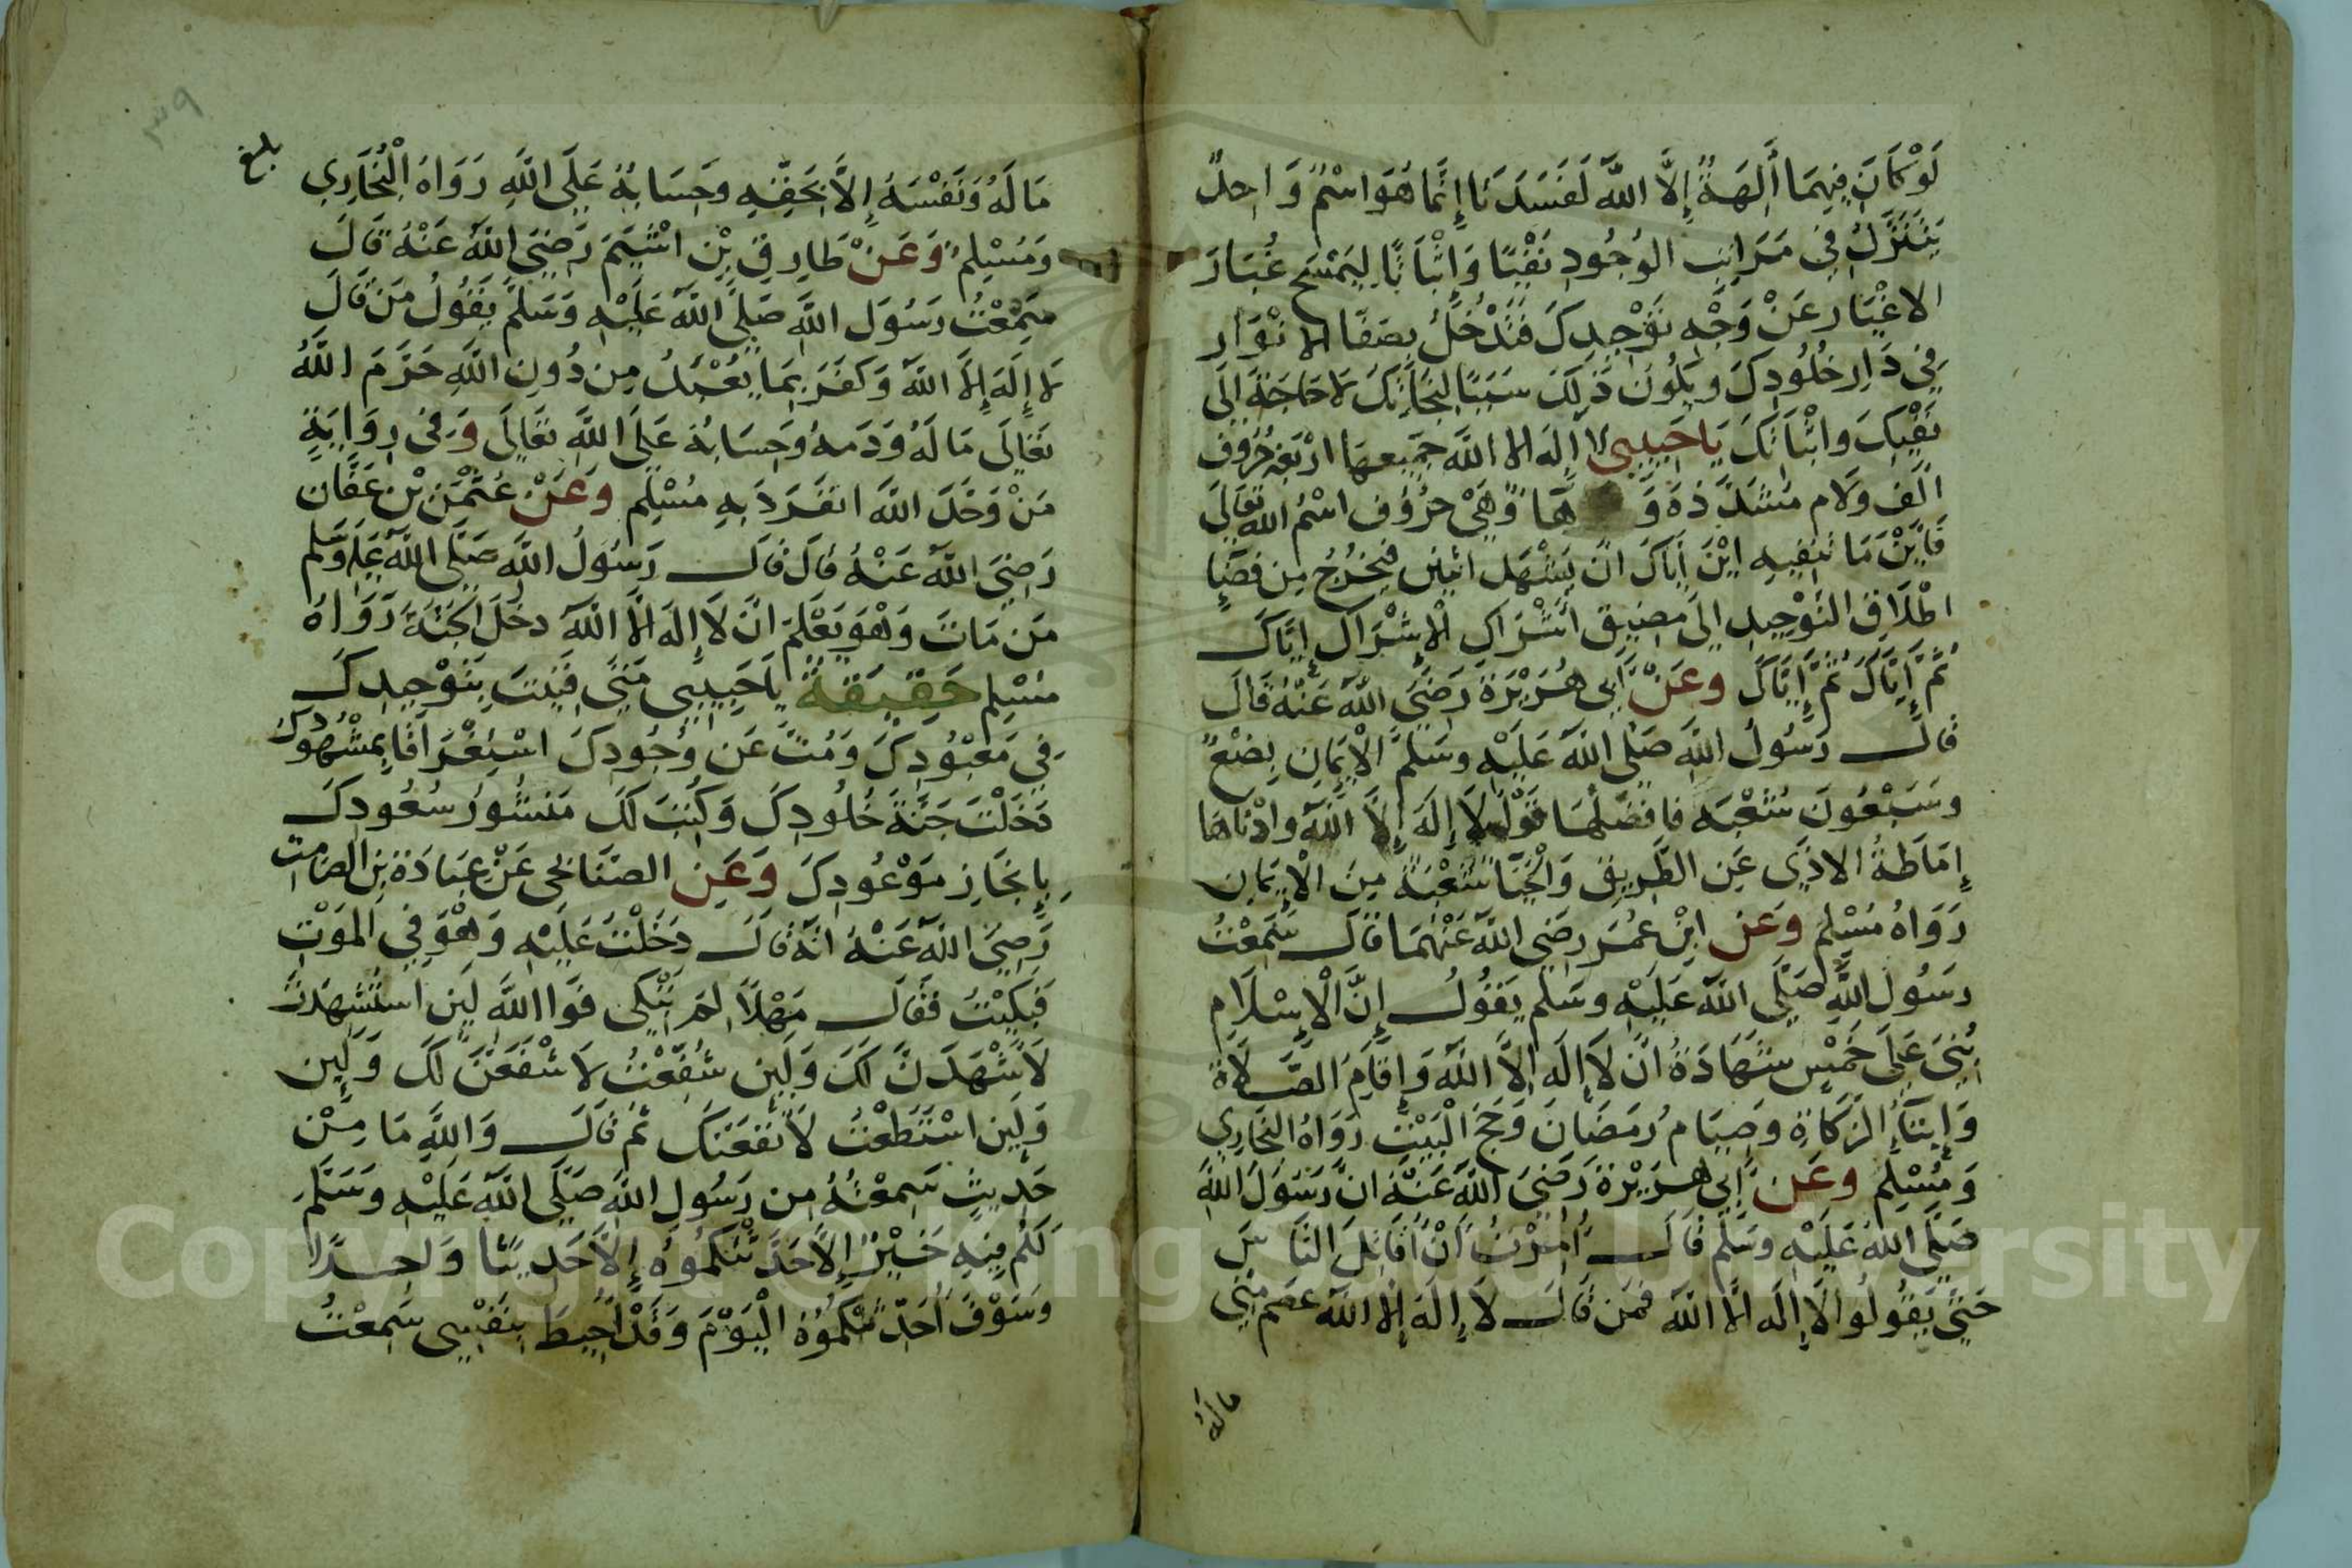 لَوْ كَانَ فِيهِمَا أَلِهَةٌ إِلَّا اللَّهُ لَفَسَدَتَا إِنَّمَا هُوَ اسْمٌ وَاحِدٌ
يَتَنَزَّلُ فِي مَرَاتِبِ الوُجُودِ نَفْيًا وَإِثْبَاتًا لِيَمْسَحَ غُبَارَ
الاغْيَارِ عَنْ وَجْهِ تَوْحِيدِكَ فَتَدْخُلُ بِصَفَا الانْوَارِ
فِي دَارِ خُلُودِكَ وَيَكُونَ ذَلِكَ سَبَبًا لِنَجَاتِكَ لَا حَاجَةَ إِلَى
نَفْيِكَ وَاثْبَاتِكَ يَا حَبِيبِي لا إِلَهَ الا اللَّه جَمِيعهَا ارْبَعَةُ حُرُوف
الف وَلَام مُشَدَّدَة وَ هَا وَهِيَ حُرُوف اسْمُ اللَّه تَعَالَى
فَأَيْنَ مَا تَنْفِيهِ ايْنَ إِيَّاكَ انْ تَشْهَد اثْنَيْنِ فَتَخْرُجُ مِن فَضَاءِ
اطْلَاقِ التَّوْحِيدِ الى مَضِيقِ اشْرَاكِ الْإِشْرَاكِ إِيَّاكَ
ثُمَّ إِيَّاكَ ثُمَّ إِيَّاكَ وَعَنْ أَبِي هُرَيْرَةَ رَضِيَ اللَّهُ عَنْهُ قَالَ
قَالَ رَسُولُ اللَّهِ صَلَّى اللَّهُ عَلَيْهِ وَسَلَّمَ الْإِيمَانِ بِضْعٌ
وَسَبْعُونَ شُعْبَه فَافْضَلُهَا قَوْلُ لَا إِلَهَ إِلَّا اللَّهُ وَادْنَاهَا
إِمَاطَةُ الاذَى عَنِ الطَّرِيقِ وَالْحَيَا شُعْبَةٌ مِنَ الْإِيمَانِ
رَوَاهُ مُسْلِم وَعَنِ ابْنِ عُمَرَ رَضِيَ اللَّهُ عَنْهُمَا قَالَ سَمِعْتُ
رَسُولَ اللَّهِ صَلَّى اللَّهُ عَلَيْهِ وَسَلَّمَ يَقُولُ إِنَّ الْإِسْلَام
بُنِيَ عَلَى خَمْسٍ شَهَادَةُ انَّ لَا إِلَهَ إِلَّا اللَّهُ وَإِقَامِ الصَّلَاةِ
وَإِيتَاءِ الزَّكَاةِ وَصِيَامِ رَمَضَانَ وَحَجِّ الْبَيْتِ رَوَاهُ البُخَارِي
وَمُسْلِم وَعَن أَبِي هُرَيْرَةَ رَضِيَ اللَّهُ عَنْهُ انَّ رَسُولَ اللَّهِ
صَلَّى اللَّهُ عَلَيْهِ وَسَلَّمَ قَالَ أُمِرْتُ أَنْ أُقَاتِلَ النَّاسَ
حَتَّى يَقُولُوا لَا إِلَهَ الَّا اللَّهُ فَمَن قَالَ لَا إِلَهَ إِلَّا اللَّهُ عَصَمَ مِنِّي
ماله
٣٩
بلغ
مَالَهُ وَنَفْسَهُ إِلَّا بِحَقِّهِ وَحِسَابُهُ عَلَى اللَّهِ رَوَاهُ الْبُخَارِي
وَمُسْلِم وَعَنْ طَارِقِ بْنِ اشْيَمَ رَضِيَ اللَّهُ عَنْهُ قَالَ
سَمِعْتُ رَسُولَ اللَّهِ صَلَّى اللَّهُ عَلَيْهِ وَسَلَّمَ يَقُولُ مَنْ قَالَ
لَا إِلَهَ إِلَّا اللَّهُ وَكَفَرَ بِمَا يُعْبَدُ مِن دُونِ اللَّهِ حَرَّمَ اللَّهُ
تَعَالَى مَالَهُ وَدَمهُ وَحِسَابُهُ عَلَى اللَّهِ تَعَالَى وَفِي رِوَايَةٍ
مَنْ وَحَّدَ اللَّهَ انفَرَدَ بِهِ مُسْلِم وَعَنْ عُثْمَن بْنِ عَفَّان
رَضِيَ اللَّهُ عَنْهُ قَالَ قَالَ رَسُولُ اللَّهِ صَلَّى اللَّهُ عَلَيْهِ وَسَلَّم
مَن مَاتَ وَهُوَ يَعْلَمُ انَّ لَا إِلَهَ الَّا اللَّهُ دَخَلَ الجَنَّةَ رَوَاهُ
مُسْلِم حَقِيقَةٌ يَا حَبِيبِي مَتَى فَنِيتَ بِتَوْحِيدِكَ
فِي مَعْبُودِكَ وَمُتَّ عَن وُجُودِكَ اسْتِغْرَاقًا بِمَشْهُودِكَ
دَخَلْتَ جَنَّةَ خُلُودِكَ وَكُتِبَ لَكَ مَنشُورُ سُعُودِكَ
بِإِنجَازِ مَوْعُودِكَ وَعَنِ الصُّنَابحِي عَنْ عُبَادَةَ بْنِ الصَّامِتِ
رَضِيَ اللَّهُ عَنْهُ انَّهُ قَالَ دَخَلْتُ عَلَيْهِ وَهُوَ فِي الْمَوْتِ
فَبَكَيْتُ فَقَالَ مَهْلًا لِمَ تَبْكِي فَوَا اللَّهِ لَئِن اسْتُشْهِدْتُ
لَاشْهَدَنَّ لَكَ وَلَئِن شُفِّعْتُ لَاشْفَعَنَّ لَكَ وَلَئِن
وَلَئِن اسْتَطَعْتُ لَأَنْفَعَنَّكَ ثُمَّ قَالَ وَاللَّهِ مَا مِنْ
حَدِيثٍ سَمِعْتُهُ مِن رَسُولِ اللَّهِ صَلَّى اللَّهُ عَلَيْهِ وَسَلَّمَ
لَكُم فِيهِ خَيْرٌ إِلَّا حَدَّثْتُكُمُوهُ إِلَّا حَدِيثًا وَاحِدًا
وَسَوْفَ أُحَدِّثُكُمُوهُ الْيَوْمَ وَقَدْ أُحِيطَ بِنَفْسِي سَمِعْتُ
Copyright © King Saud University